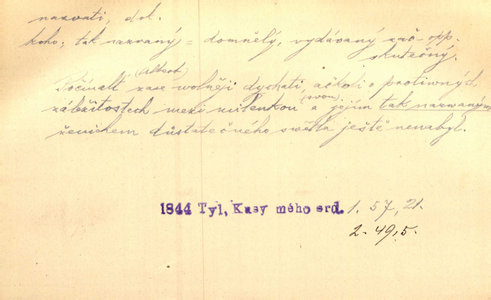 nazvati, dok.
koho; tak zvaný = domnělý, vydávaný zač - opp.
skutečný.
(Albert)
Počínall zase volněji dýchati, ačkoli o protivných
záležitostech mezi milenkou (svou) a jejím tak nazvaným
ženichem dostatečného světla ještě nenabyl.
1844 Tyl, Kusy mého srd. 1. 57, 21.
2. 49, 5.